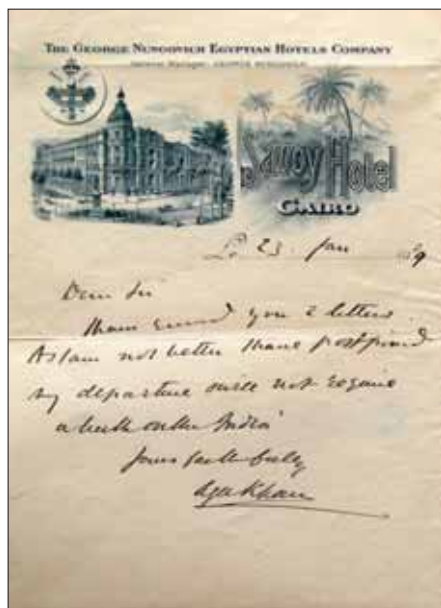 THE GEORGE NUNGOVICH EGYPTIAN HOTELS COMPANY
General Manager: GEORGE NUNGOVICH
Savoy Hotel
CAIRO
23 Jan
Dear Sir
I have received your 2 letters
As I am not better I have postponed
my departure & will not require
a berth on the "India"
Yours faithfully
Aga Khan